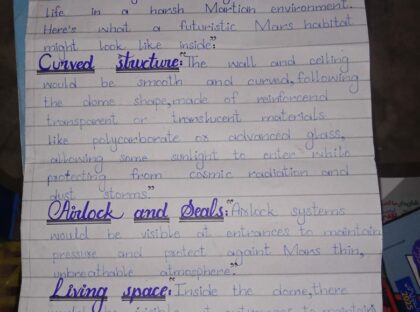 life in a harsh Martian environment.
Here's what a futuristic Mars habitat
might look like inside:"
Curved structure:"The wall and ceiling
would be smooth and curved, following
the dome shape, made of reinforcend
transparent or translucent materials
like polycarborate or advanced glass,
allowing some sunlight to enter while
protecting from cosmic radiation and
dust storms."
Airlock and Seals:"Airlock systems
would be visible at entrances to maintain
pressure and protect againt Mars thin,
unbreathable atmosphere."
Living space:"Inside the dome, there